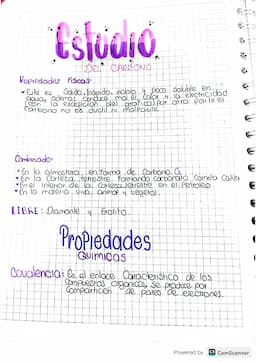 Estudio
DEL CARBONO
Propiedades Fisicas:
Este es Solido, insipido, inodoro y poco soluble en
agua, además conduce mal el calor y la electricidad
(con la excepción del grafito) por otra parte el
Carbono no es ductil ni maleable.
Combinado:
En la atmosfera, en forma de Carbono
En la Corteza terrestre, formando carbonato, Como la Caliza
En el interior de la Corteza terrestre en el Petroleo
En la materia viva animal y vegetal.
LIBRE: Diamante y Grafito.
Propiedades
QUIMICAS
Covalencia: Es el enlace Característico de los
Compuestos organicos, se produce por
Compartición de pares de electrones.
Powered by CS CamScanner